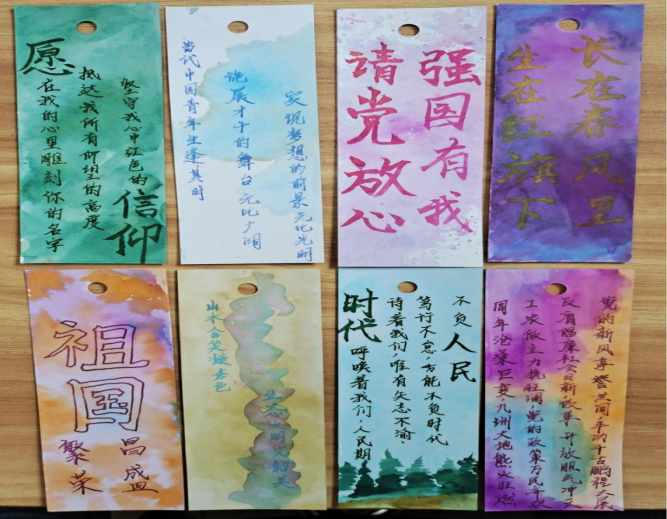 愿
坚守我心中红色的
信仰
抵达我所有仰望的高度
在我的心里雕刻你的名字
当代中国青年生逢其时
施展才干的舞台无比广阔
实现梦想的前景无比光明
强国有我
请党放心
生在红旗下
长在春风里
祖国
繁荣
昌盛
山水含笑凝春色
时代
呼唤着我们,人民期
待着我们,唯有矢志不渝
笃行不怠,方能不负时代
不负人民
党的新风享
反腐倡廉社会日新 改革开放胆气冲
工农做主力挽狂澜 党的政策万民
周年沧桑巨变 九洲大地熊火旺燃